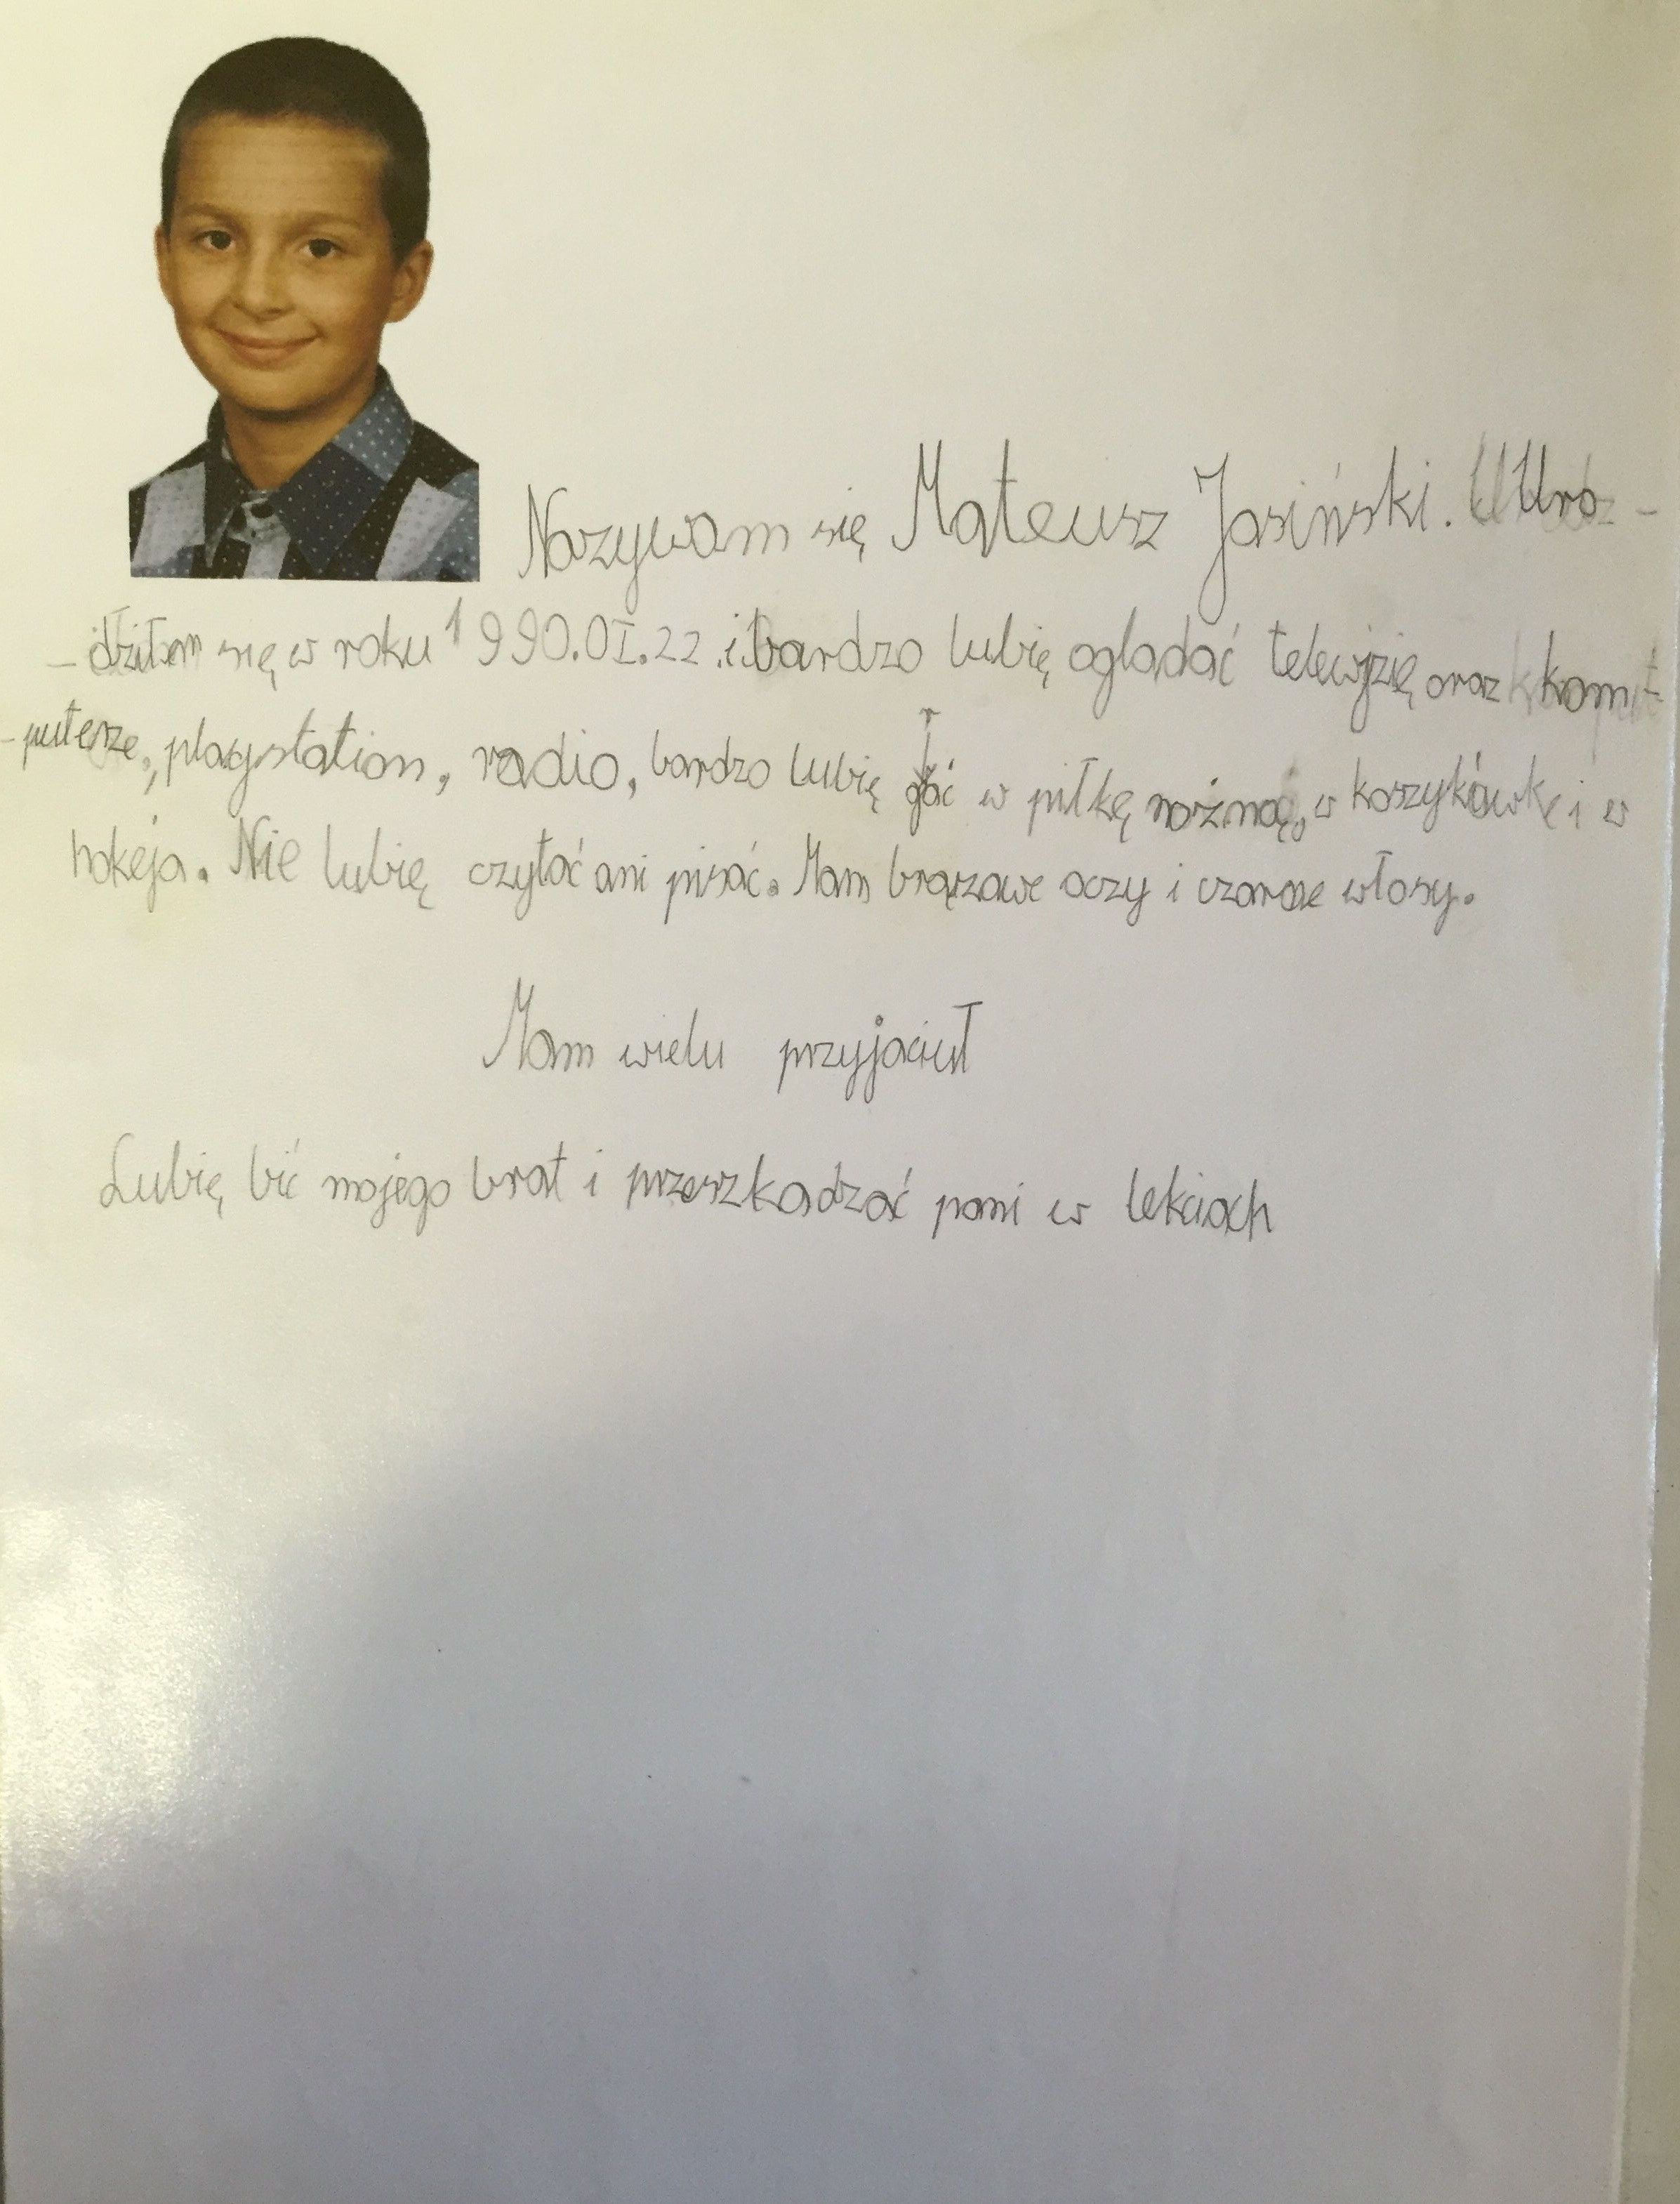 Nazywam się Mateusz Jasiński. Uro-
-dziłem się w roku 1990.01.22 i bardzo lubię ogladać telewizię oraz kom-
-puterze, playstation, radio, bardzo lubię grać w piłkę nożną, w koszykówkę i w
hokeja. Nie lubię czytać ani pisać. Mam brązawe oczy i czarne włosy.
Mam wielu przyjaciuł
Lubię bić mojego brat i przeszkadzać pani w lekciach